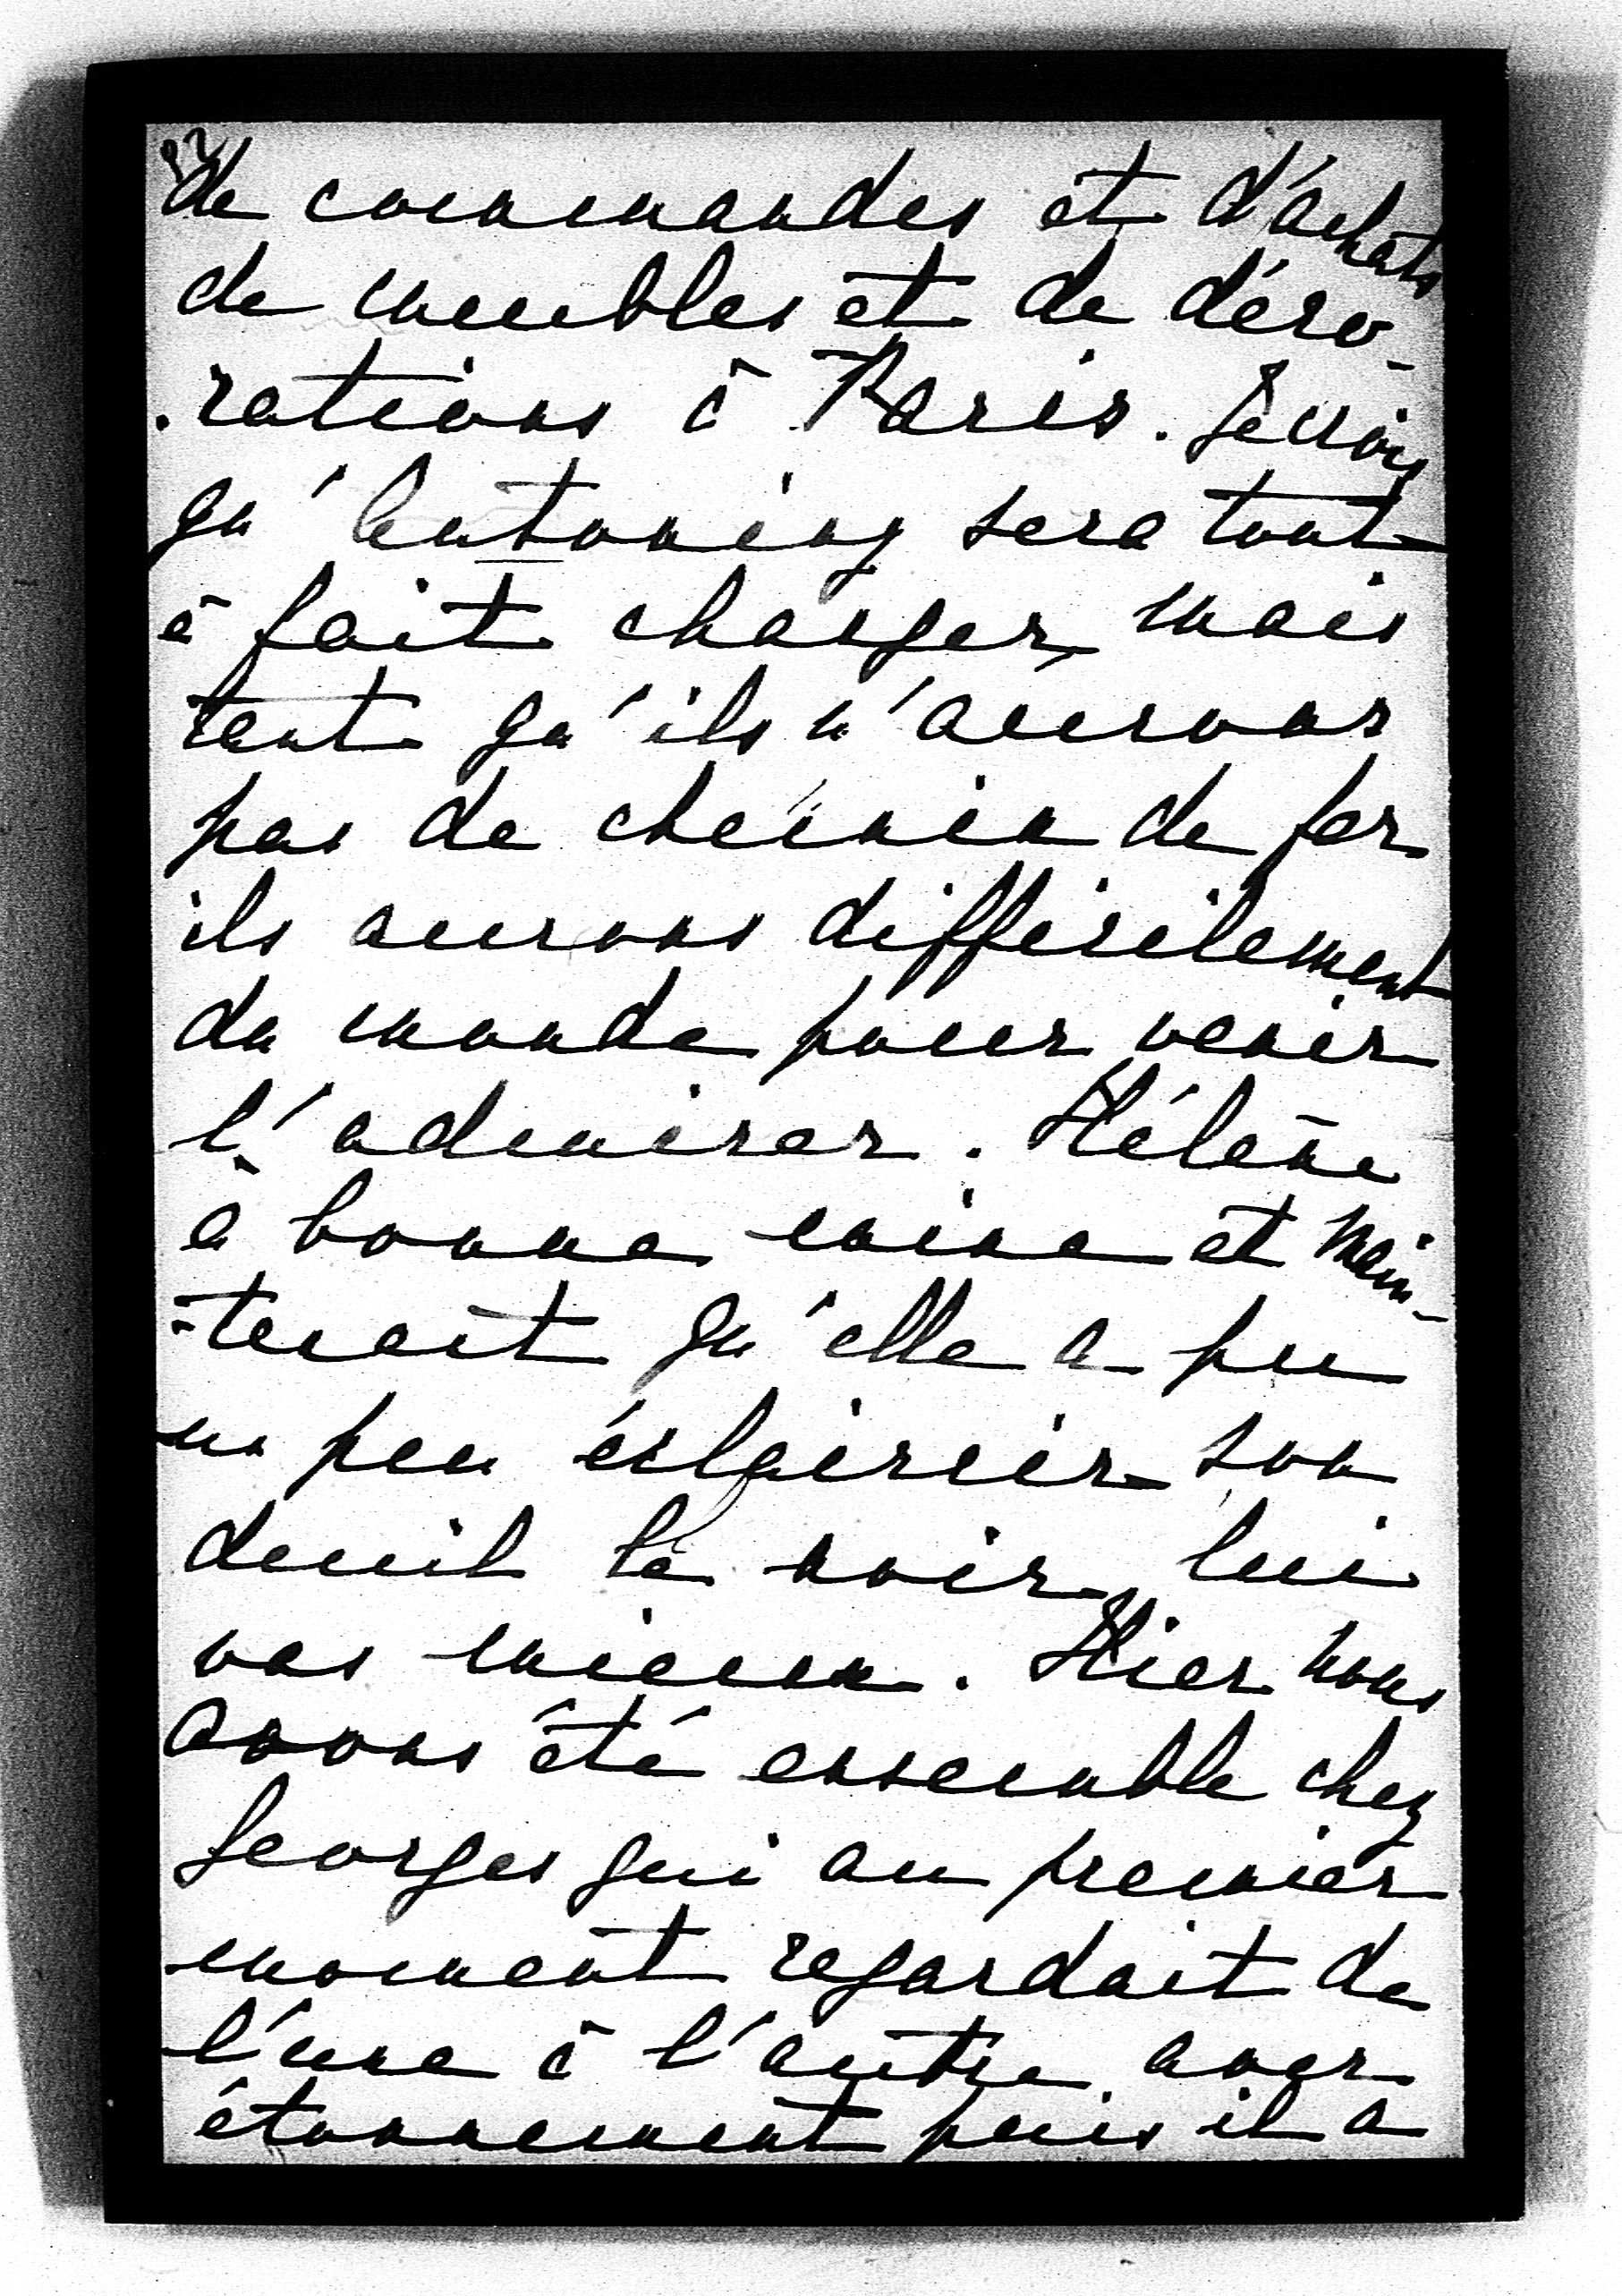 de commandes et d'achats
de meubles et de déco-
-rations à Paris. Je crois
qu'Antoniny sera tout
à fait changer, mais
tant qu'ils n'aurons
pas de chemin de fer
ils aurons difficilement
du monde pour venir
l'admirer. Hélène
à bonne mine et main-
-tenant qu'elle a pu
un peu éclaircir son
deuil le noir lui
vas mieux. Hier nous
avons été ensemble chez
Georges qui au premier
moment regardait de
l'une à l'autre avec
étonnement puis il a